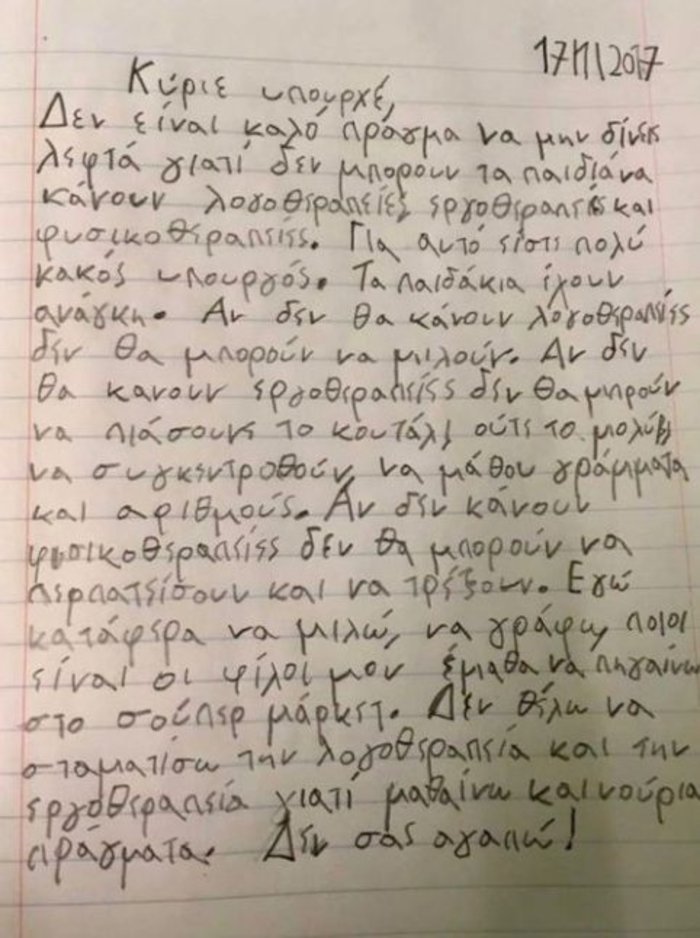 17/11/2017
Κύριε υπουρχέ,
Δεν είναι καλό πράγμα να μην δίνεις
λεφτά γιατί δεν μπορουν τα παιδιά να
κάνουν λογοθεραπείες, εργοθεραπείες και
φυσικοθεραπείες. Για αυτό είστε πολύ
κακός υπουργός. Τα παιδάκια έχουν
ανάγκη. Αν δεν θα κάνουν λόγοθεραπείες
δεν θα μπορούν να μιλούν. Αν δεν
θα κανουν εργοθεραπείες δεν θα μπρούν
να πιάσουν το κουτάλι ούτε το μολύβι
να συγκεντροθούν, να μάθου γράμματα
και αριθμούς. Αν δεν κάνουν
φυσικοθεραπείες δεν θα μπορούν να
περπατείσουν και να τρέξουν. Εγώ
κατάφερα να μιλώ, να γράφω, ποιοι
είναι οι φίλοι μου έμαθα να πηγαίνω
στο σούπερ μάρκετ. Δεν θέλω να
σταματίσω την λογοθεραπεία και την
εργοθεραπεία γιατί μαθαίνω καινούρια
πράγματα. Δεν σας αγαπώ!